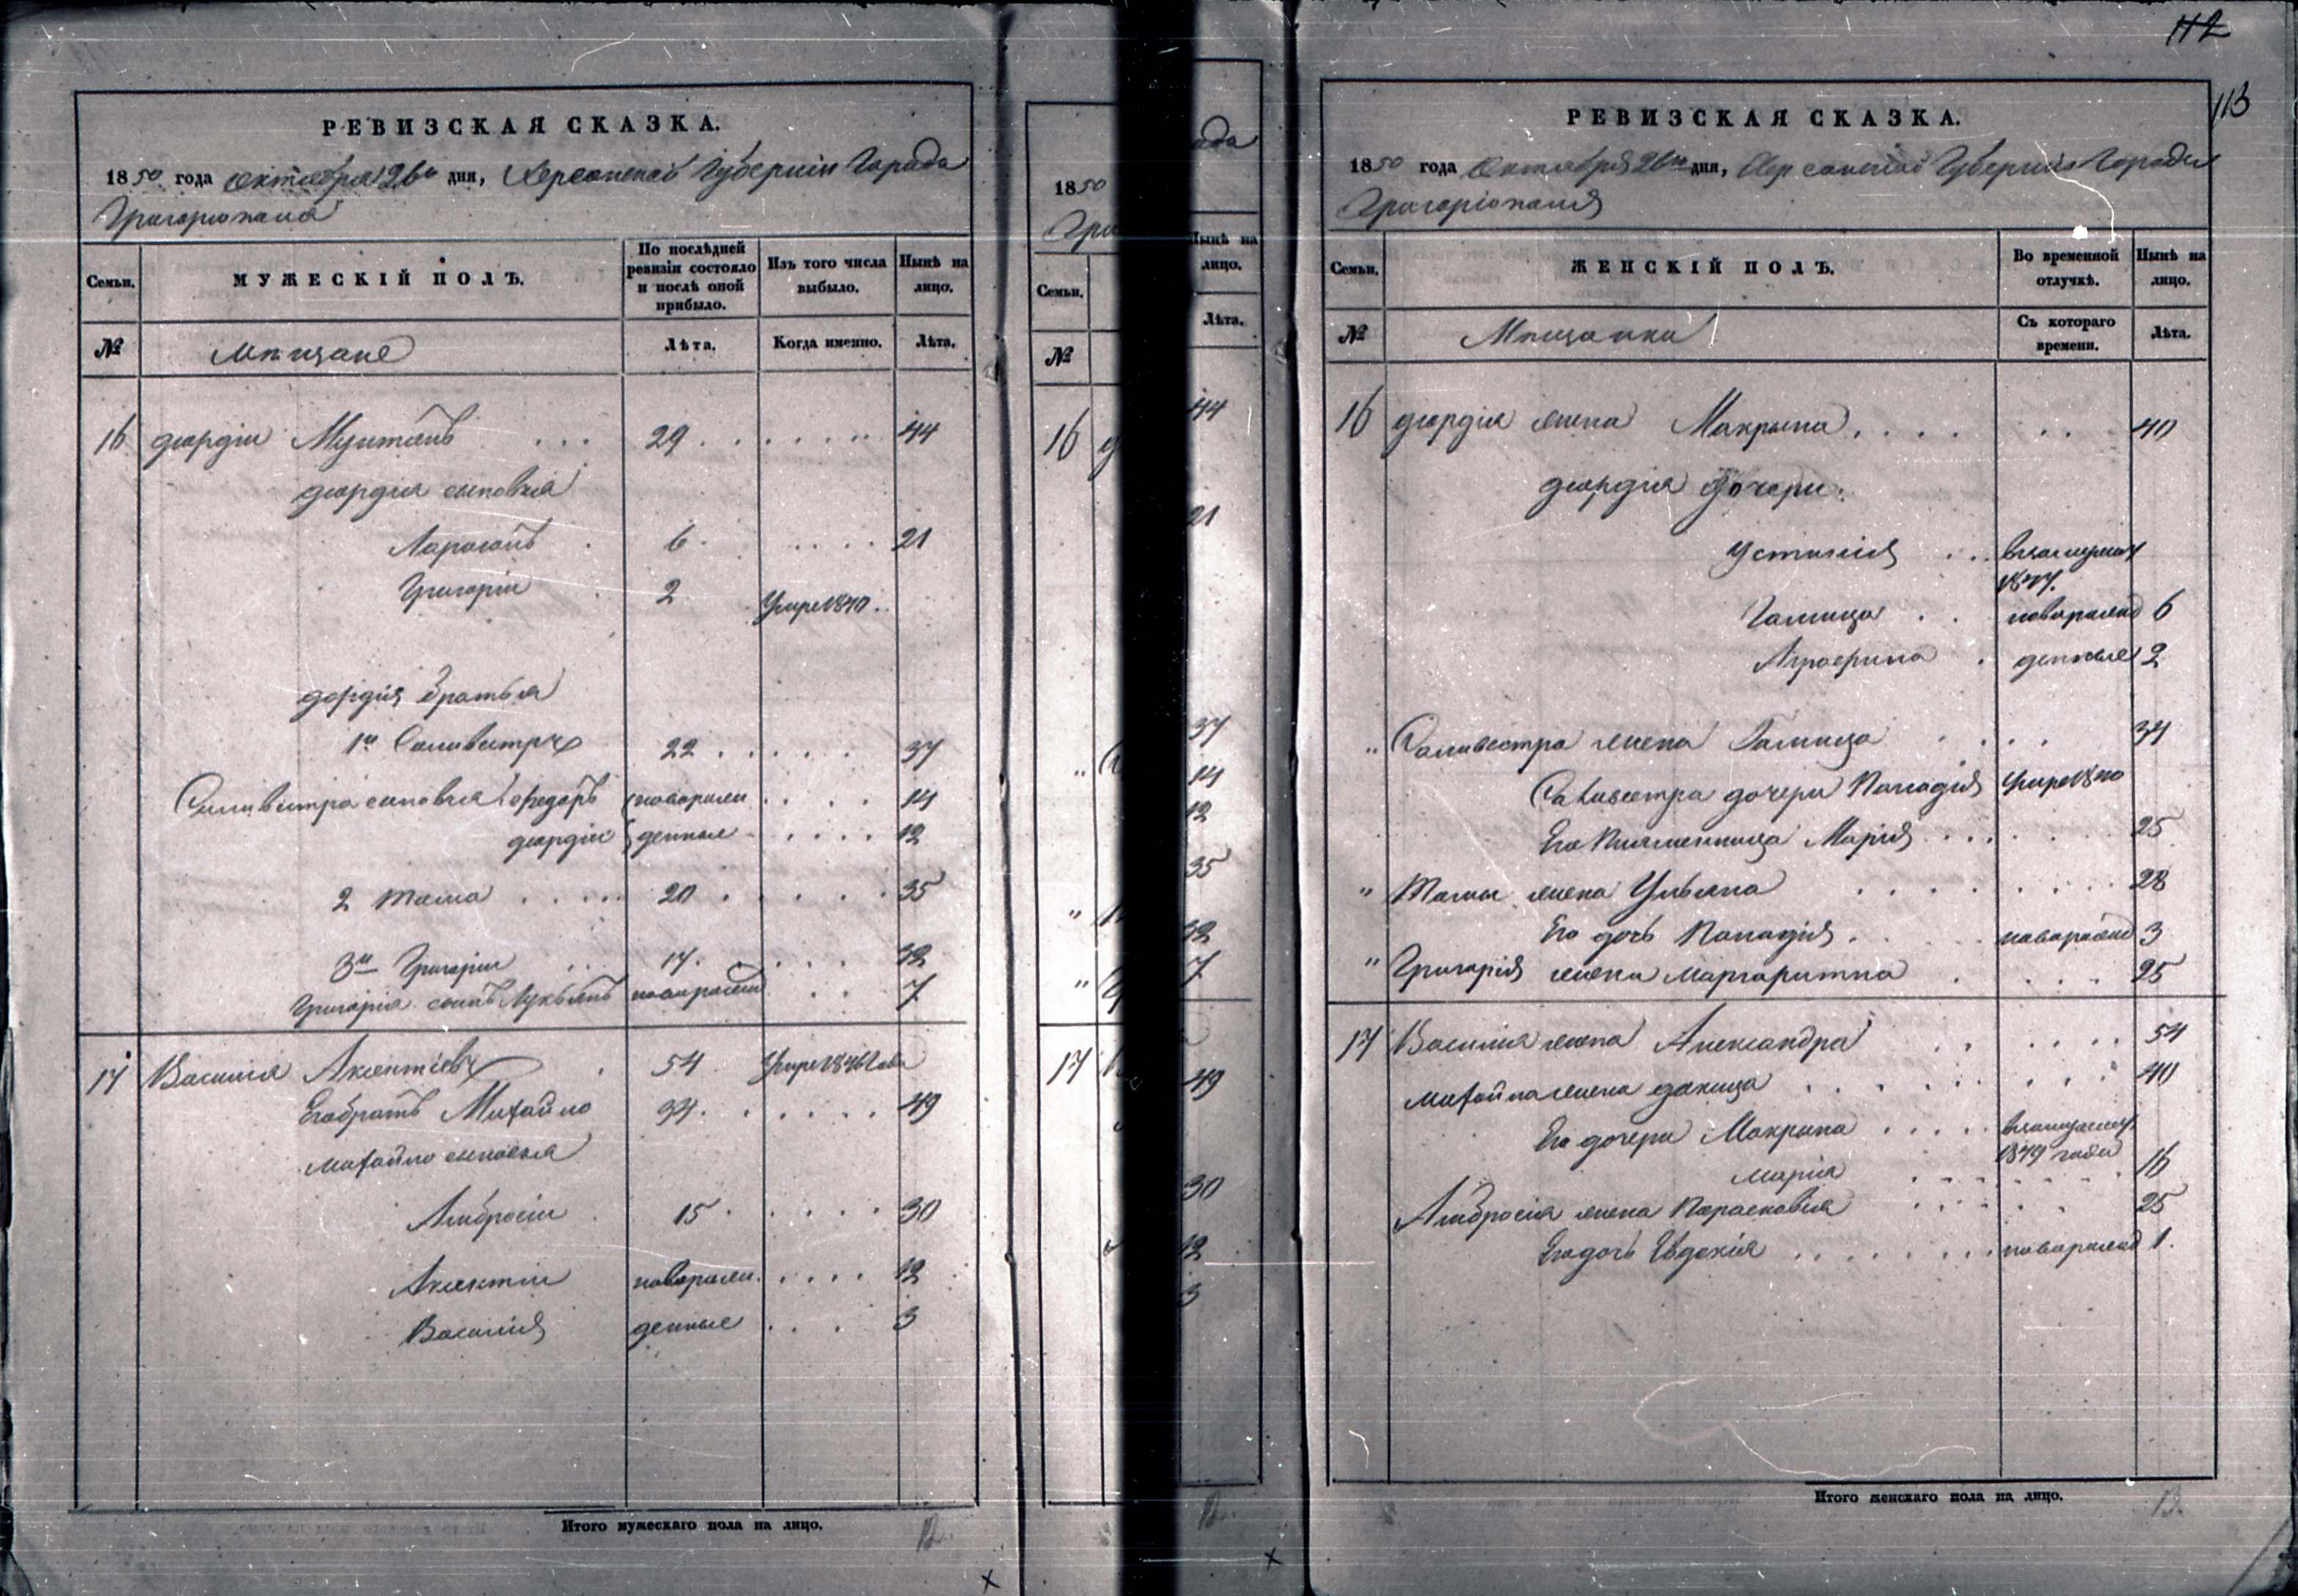 РЕВИЗСКАЯ СКАЗКА.
1850 года октября 26го дня, Херсонской Губернии Города
Григориополя
Семьи. МУЖЕСКІЙ ПОЛЪ. По послѣдней ревизіи состояло и послѣ оной прибыло. Изъ того числа выбыло. Нынѣ на лицо.
№ Мѣщане Лѣта. Когда именно. Лѣта.
16 Георгій 29 44
Георгія сыновья
6 21
Григорій 2 Умре 1840
братья
1й 22 37
Силивестра сыновья Федоръ новорож 14
Георгій денные 12
2 Тома 20 35
3й Григорій 17 32
Григорія сынъ Лукьянъ новорожден 7
17 Василій Аксентіевъ 54 Умре 1846 года
Его братъ Михайло 34 49
Михайло сыновья
Амбросій 15 30
Аксентій новорож 12
Василій денные 3
Итого мужескаго пола на лицо. 12
1850
Гри
Семьи.
№
16
17
ода
Нынѣ на лицо.
Лѣта.
44
21
37
14
12
35
32
7
49
30
12
3
112
113
РЕВИЗСКАЯ СКАЗКА.
1850 года Октября 26го дня, Херсонской Губерніи Города
Григоріополя
Семьи. ЖЕНСКІЙ ПОЛЪ. Во временной отлучкѣ. Нынѣ на лицо.
№ Мѣщанки Съ котораго времени. Лѣта.
16 Георгія жена Макрына 40
Георгія дочери:
Устинія
1847.
Гафица новорожд 6
денные 2
" Силивестра жена Гафица 34
Силивестра дочери Умре 1840
Его племенница Марія 25
" Томы жена Ульяна 28
Его дочь новорожд 3
" Григорія жена Маргаритта 25
17 Василія жена Александра 54
Михайла жена 40
Его дочери Макрина
1849 года
Марія 16
" Амбросія жена Парасковія 25
Его дочь Евдокія новорожд 1.
Итого женскаго пола на лицо. 13